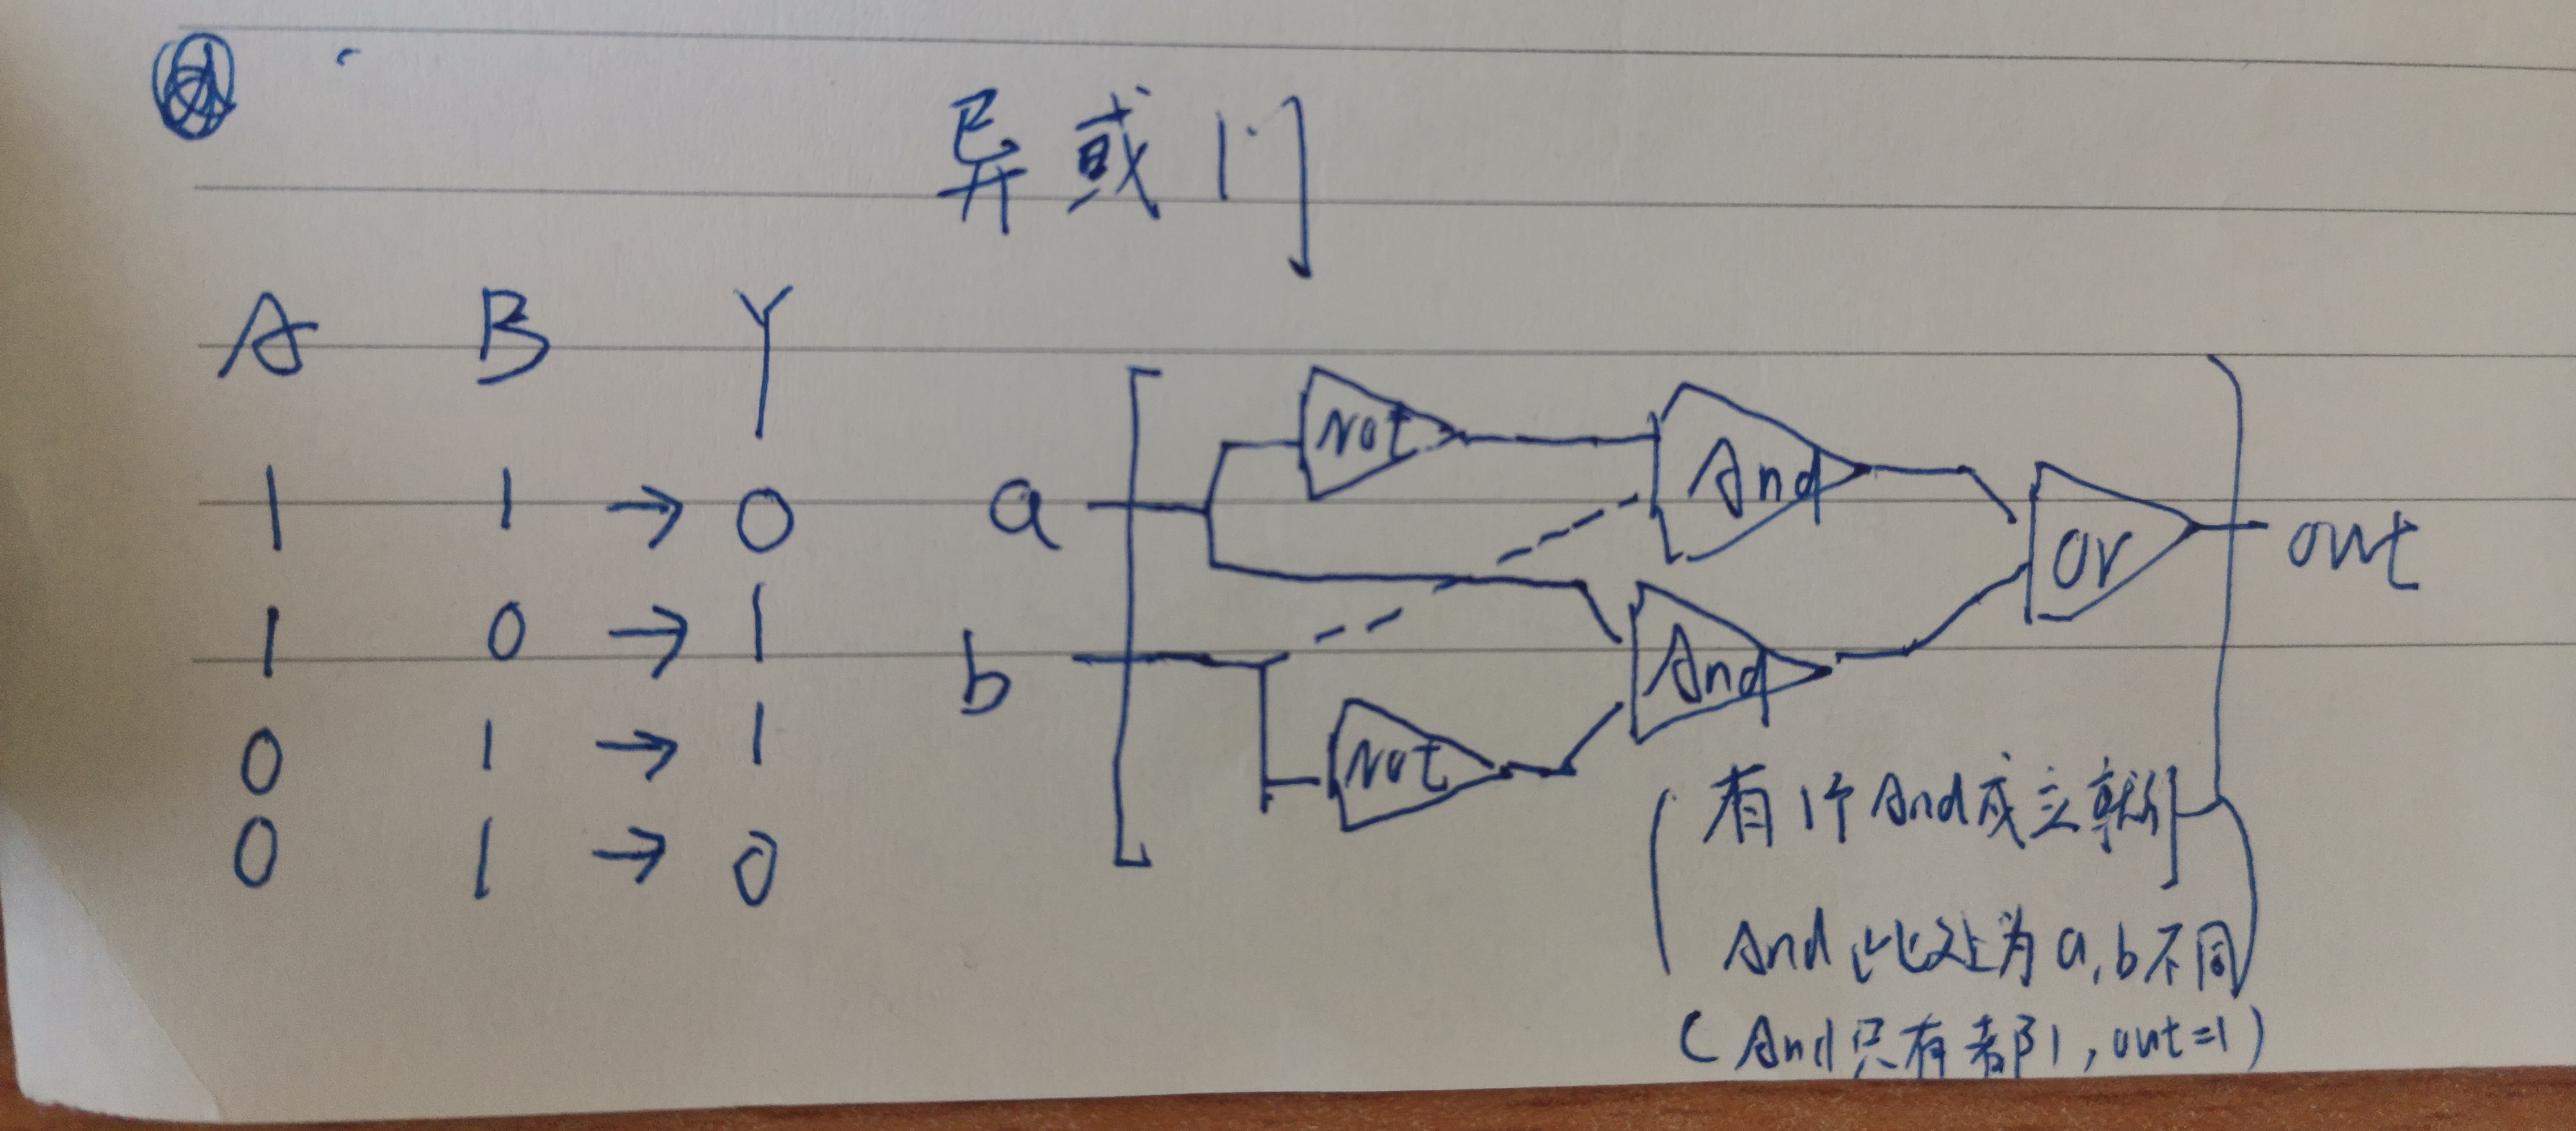 异或门
A B Y
1 1 → 0
1 0 → 1
0 1 → 1
0 1 → 0
a
b
Not
And
Or
out
And
Not
(有1个And成立就行
And此处为a,b不同)
(And只有都1,out=1)